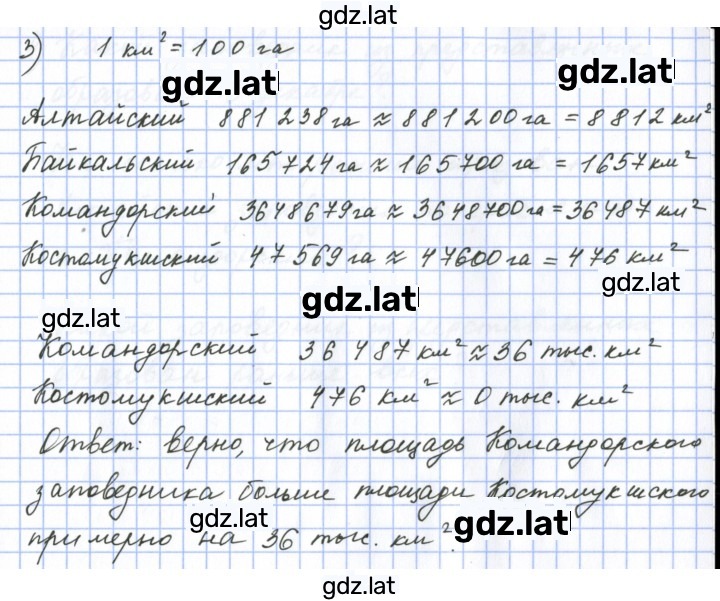 gdz.lat
3) 1 км² = 100 га
gdz.lat gdz.lat
Алтайский 881 238 га ≈ 881 200 га = 8812 км²
Байкальский 165 724 га ≈ 165700 га = 1657 км²
Командорский 3648679 га ≈ 3648700 га = 36487 км²
Костомукшский 47 569 га ≈ 47600 га = 476 км²
gdz.lat
gdz.lat
gdz.lat
Командорский 36 487 км² ≈ 36 тыс. км²
Костомукшский 476 км² ≈ 0 тыс. км²
Ответ: верно, что площадь Командорского
заповедника больше площади Костомукшского
gdz.lat gdz.lat
примерно на 36 тыс. км².
gdz.lat